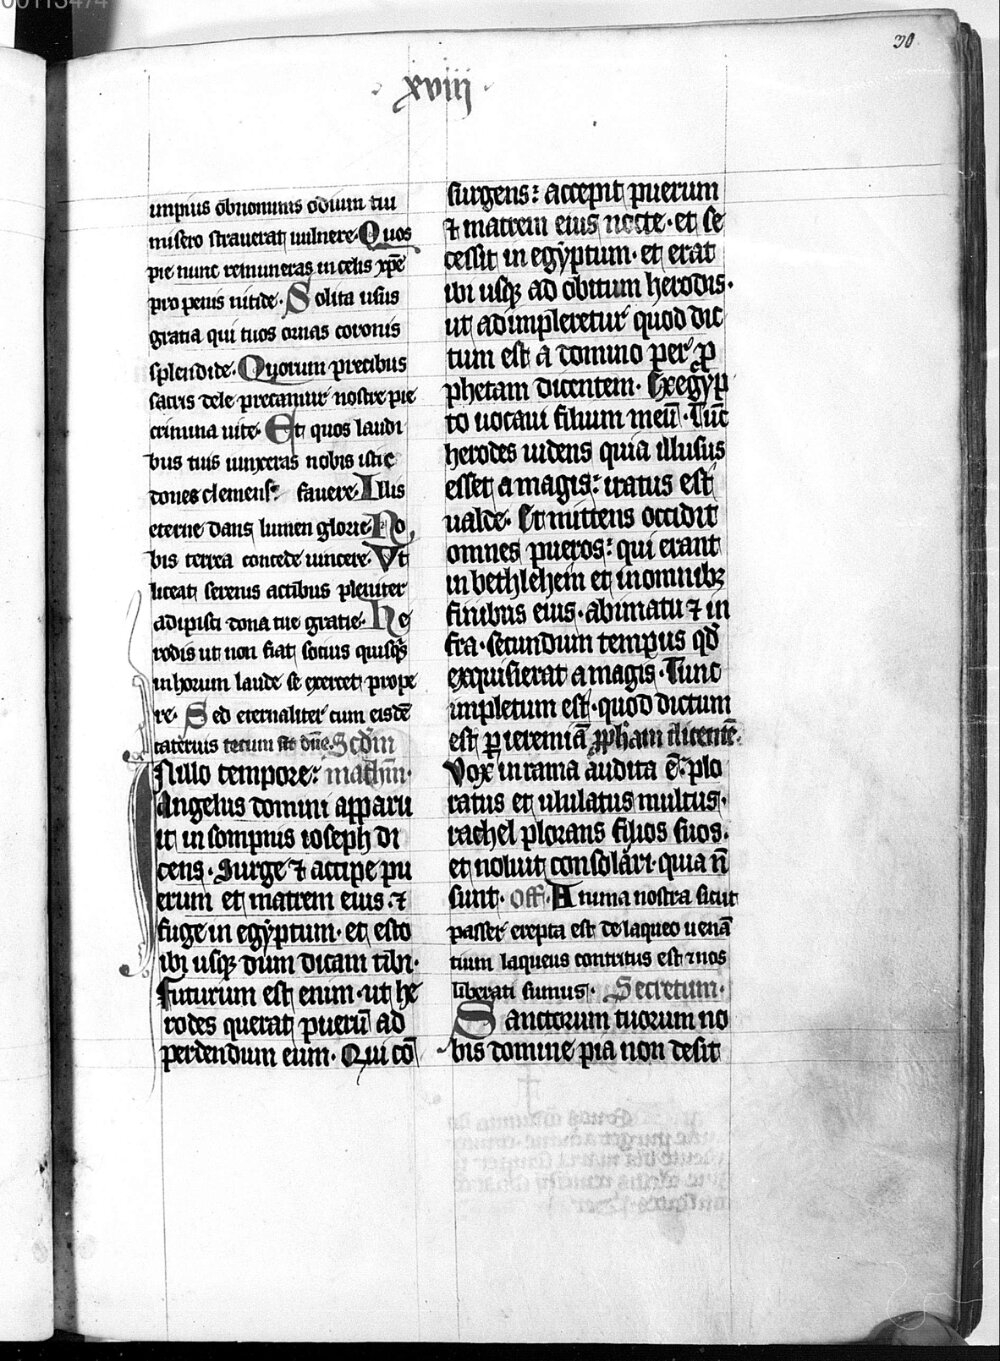 00113474
30
xviii
impius obriommis odium tui
misero strauerat uulnere. Quos
pie nunc remuneras in celis xp̄e
pro penis nitide. Solita usus
gratia qui tuos ornas coronis
splendide. Quorum precibus
sacris dele precamur nostre pie
crimina uite. Et quos laudi
bus tuis iunxeras nobis istic
dones clemens fauere. Illis
eterne dans lumen glorie No
bis terrea concede uincere. Vt
liceat serenis actibus pleniter
adipisci dona tue gratie. He
rodis ut non fiat socius quisq̄s
in horum laude se exercet prope
re. Sed eternaliter cum eisdē
caterius tecum sit dn̄e. Scdm̄
In illo tempore: mathm̄.
Angelus domini apparu
it in sompnis ioseph di
cens. Surge ⁊ accipe pu
erum et matrem eius. ⁊
fuge in egyptum. et esto
ibi usqꝫ dum dicam tibi.
Futurum est enim. ut he
rodes querat puerū ad
perdendum eum. Qui cō
surgens: accepit puerum
⁊ matrem eius nocte. et se
cessit in egyptum. et erat
ibi usqꝫ ad obitum herodis.
ut adimpleretur quod dic
tum est a domino per ꝓ
phetam dicentem. Ex egyp
to uocaui filium meū. Tūc
herodes uidens quia illusus
esset a magis: iratus est
ualde. Et mittens occidit
omnes pueros: qui erant
in bethlehem et in omnibꝫ
finibus eius. a bimatu ⁊ in
fra. secundum tempus qd̄
exquisierat a magis. Tunc
impletum est. quod dictum
est ꝑ ieremiā ꝓpham dicentē.
Vox in rama audita ē. plo
ratus et ululatus multus.
rachel plorans filios suos.
et noluit consolari. quia n̄
sunt. Off. Anima nostra sicut
passer erepta est de laqueo uenā
tium laqueus contritus est ⁊ nos
liberati sumus. Secretum.
Sanctorum tuorum no
bis domine pia non desit